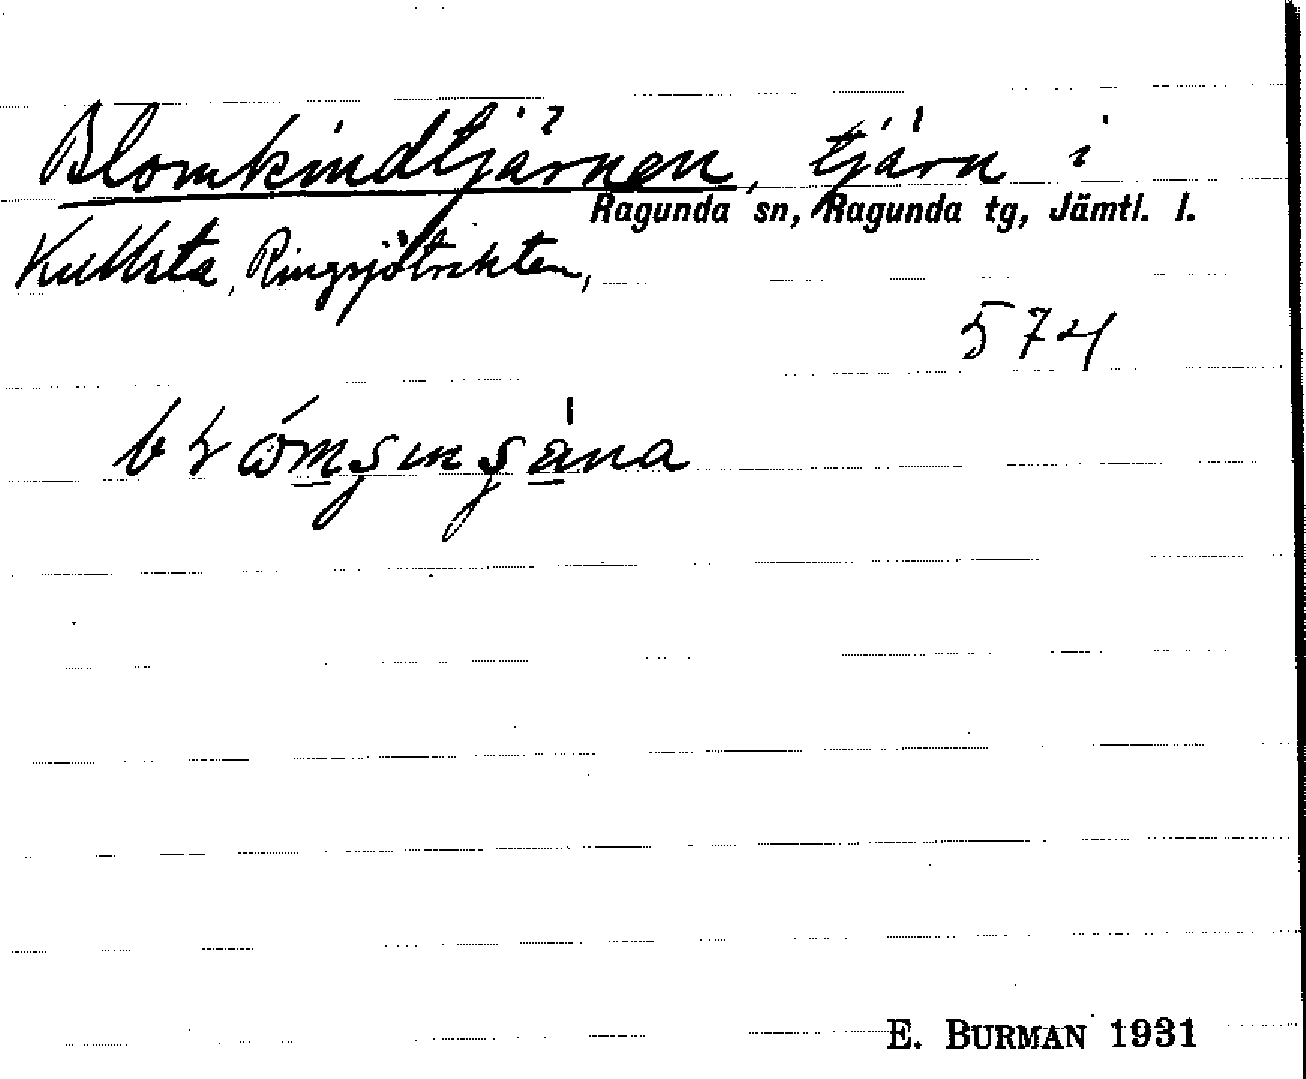 Blomkindtjärnen, tjärn i
Ragunda sn, Ragunda tg, Jämtl. l.
Kullsta, Ringsjötrakten,
574
E. BURMAN 1931